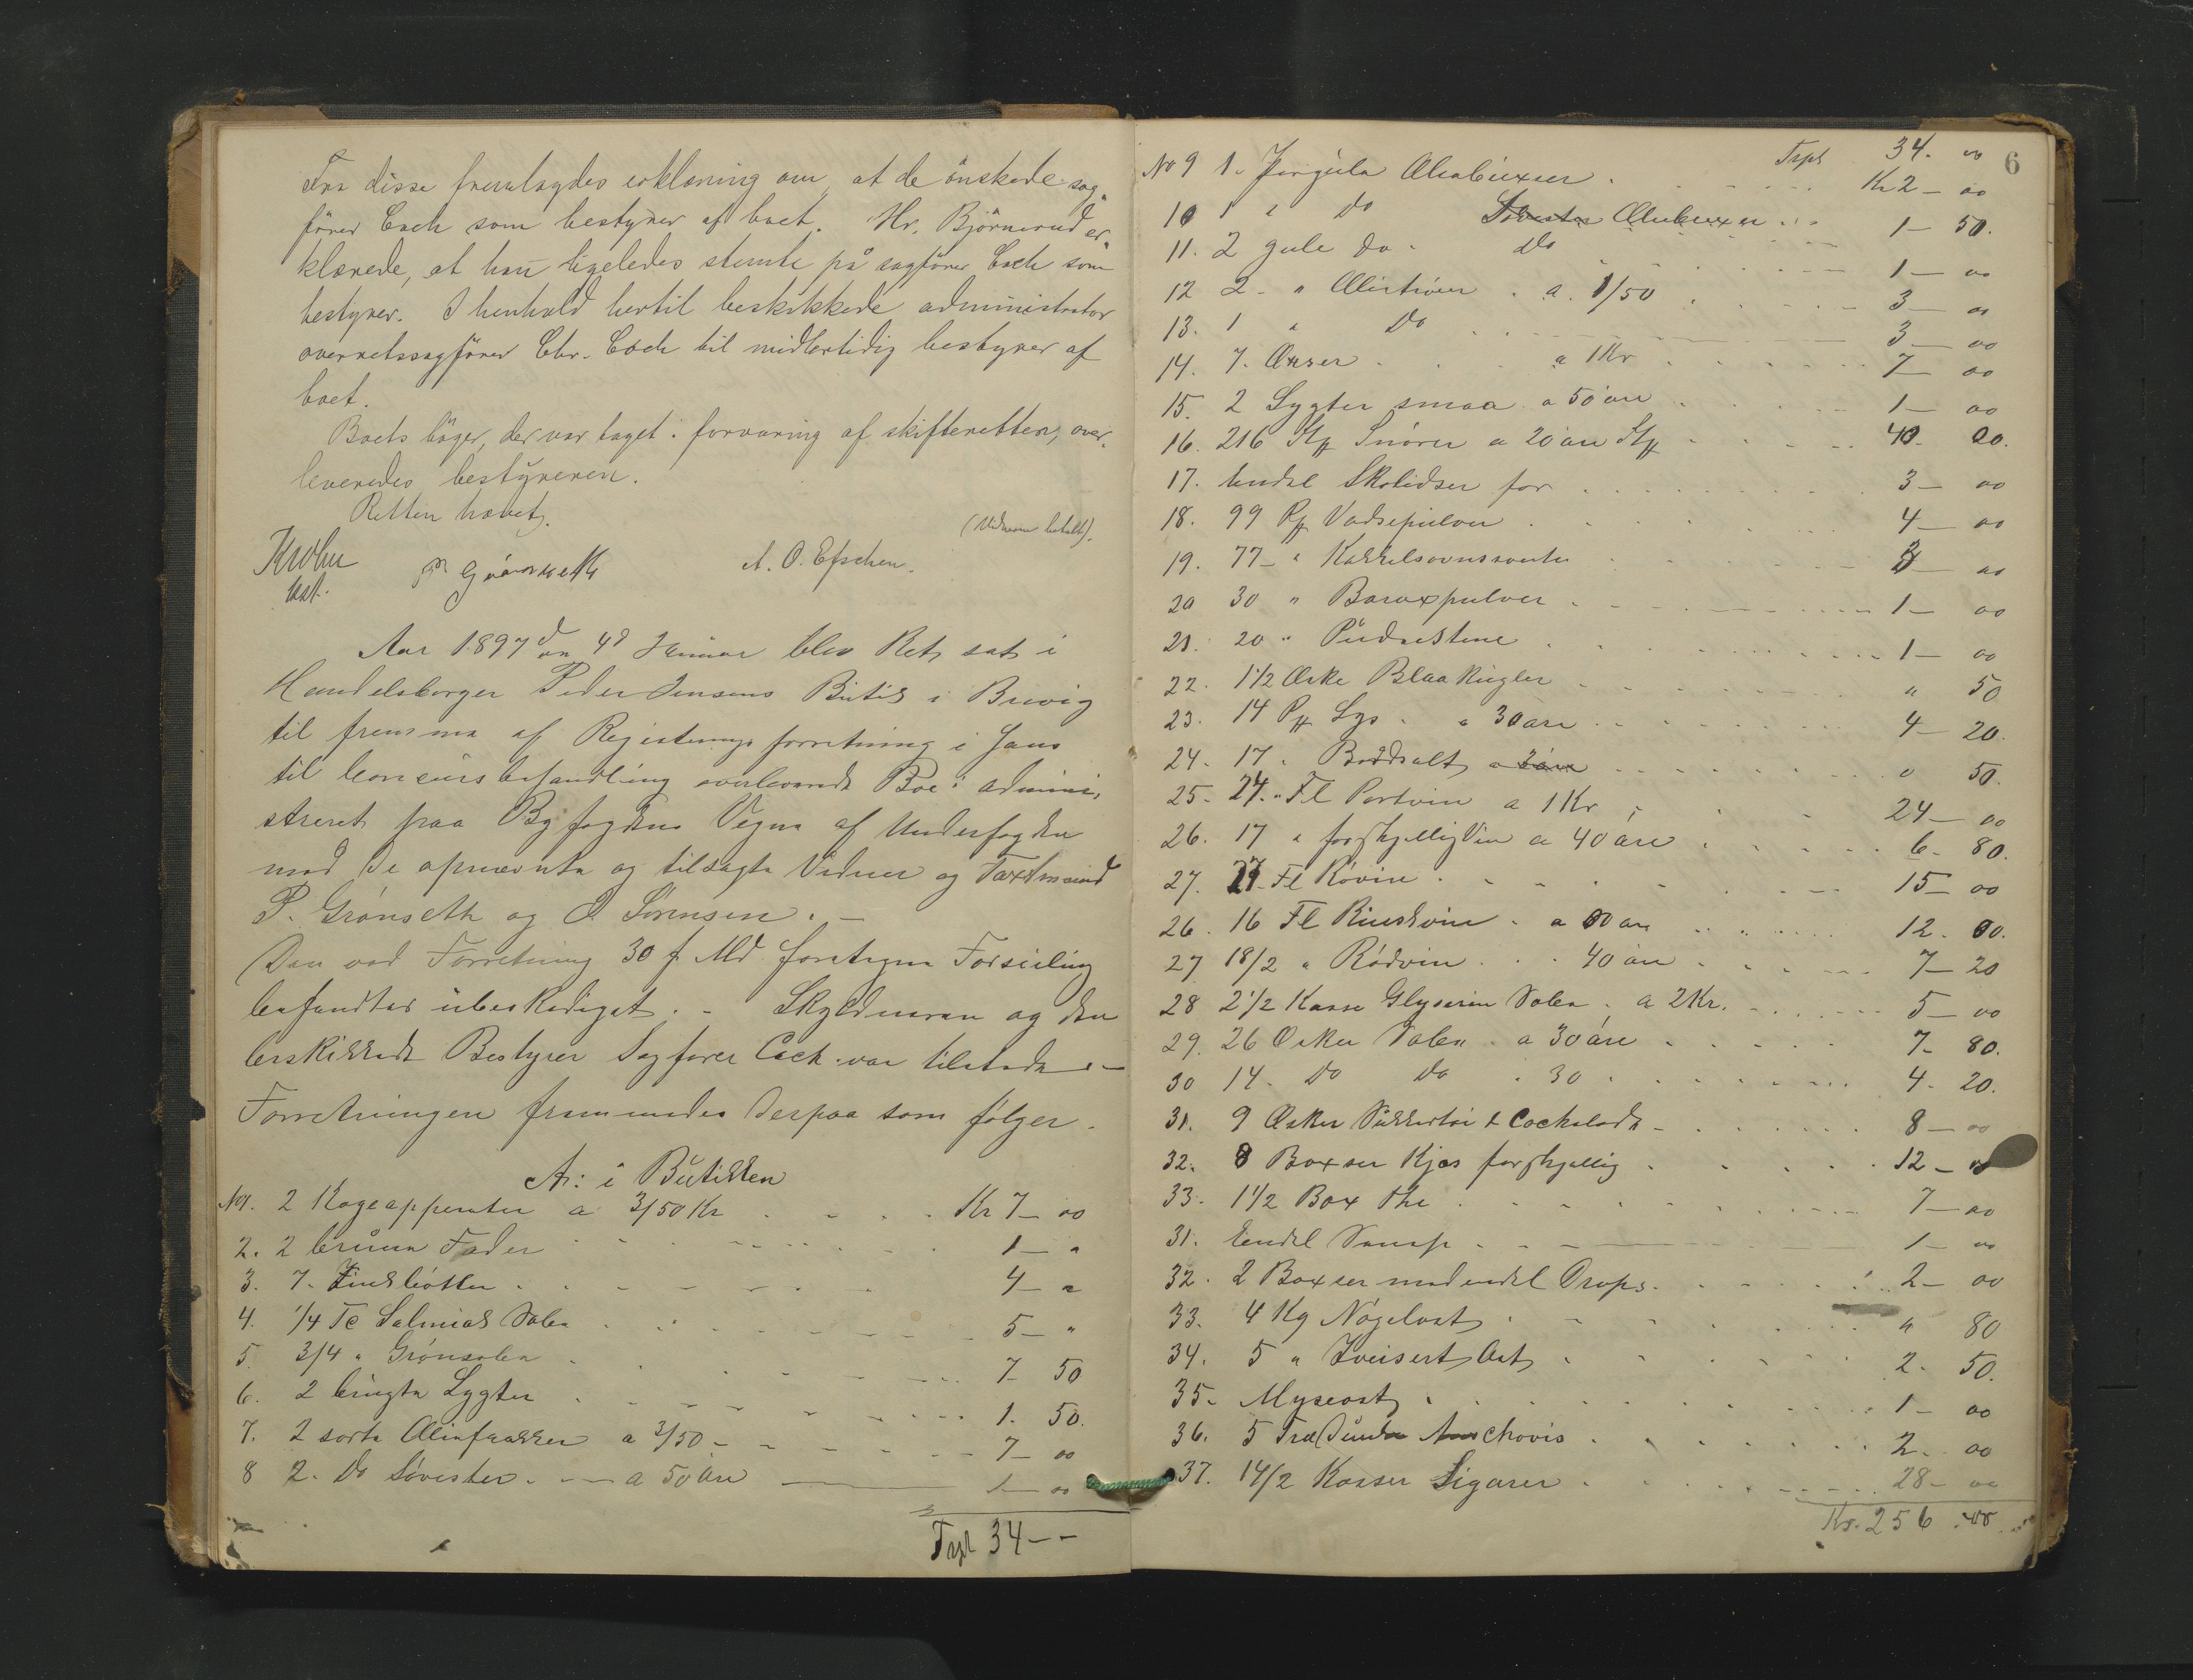 Fra disse fremlagdes erklæring om, at de ønskede sag-
fører Coch som bestyrer af boet. Hr. Bjørnerud er-
klærede, at han ligeledes stemte på sagfører Coch som
bestyrer. I henhold hertil beskikkede administrator
overretssagfører Chr. Coch til midlertidig bestyrer af
boet.
Boets bøger, der var taget i forvaring af skifteretten, over-
leveredes bestyreren.
Retten hævet.
(Vidnerne betalt).
Krohn
P Grønseth
A. O. Efschen.
Aar 1897 den 4de Januar blev Ret sat i
Handelsborger Peder Jensens Butik i Brevig
til fremme af Registeringsforretning i hans
til Concursbehandling overleverede Boe: admini-
streret paa Byfogdens Vegne af Underfogden
med de opnævnte og tilsagte Vidner og Taxtmænd
P. Grønseth og O. Sørensen. –
Den ved Forretning 30 f. Md foretagne Forsegling
befandtes ubeskadiget. – Skyldneren og den
beskikkede Bestyrer Sagfører Coch var tilstede –
Forretningen fremmedes derpaa som følger.
A: i Butikken
No 1. 2 Kogeapperater a 3/50 Kr Kr 7 – 00
2. 2 bruna Fader 1 – "
3. 7. Zinkbøtter 4 – "
4. 1/4 Tc Salmiak Sæbe 5 – "
5. 3/4 " Grønsæbe 7 – 50
6. 2 brugte Lygter 1. 50.
7. 2 sorte Oliefrakker a 3/50 – 7 – 00
8 2. Do Søvester. a 50 øre 1 – 00
Trpt 34 – –
6
Trpt 34. 00
No 9 1. Par gule Oliebuxser Kr 2 – 00
10 1 " Do Oliebuxer 1 – 50.
11. 2 gule Do. Do 1 – 00
12 2 – " Olietrøier a. 1/50 3 – 00
13. 1 " Do 3 – 00
14. 7. Øxser a 1 Kr 7 – 00
15. 2 Lygter smaa a 50 øre 1 – 00
16. 216 Stk Snører a 20 øre Stk 40. 00.
17. Endel Skolidser for 3 – 00
18. 99 Pk Vadsepulver 4 – 00
19. 77 – " Kakkelsovnssverte 3 – 00
20 30 " Boraxpulver 1 – 00
21. 20 " Pudsestene 1 – 00
22. 1 1/2 Æske Blaakugler " 50
23. 14 Pk Lys. a 30 øre 4 – 20.
24. 17. Bordsalt a 3 øre " 50.
25. 24. " Fl Portvin a 1 Kr 24 – 00
26. 17 " forskjellig Vin a 40 øre 6 – 80.
27. 27 Fl Røvin 15 – 00
26. 16 Fl Rinskvin. a 80 øre 12. 80.
27 18/2 " Rødvin 40 øre 7 – 20
28 2 1/2 Kasse Glyserin Sæbe. a 2 Kr. 5 – 00
29. 26 Æsker Sæbe. a 30 øre 7 – 80.
30 14. Do Do . 30 4 – 20.
31. 9 Æsker Sukkertøi & Cockelade – 8 – 00
32. 8 Boxser Kjæs forskjellig 12 – 00
33. 1 1/2 Box The 7 – 00
31. Endel Senep 1 – 00
32. 2 Boxser med endel Drops. 2 – 00
33. 4 Kg Nøgelost " 80
34. 5 " Sveisert Ost 2. 50.
35. Myseost 1 – 00
36. 5 Træ Anchovis 2. 00
37. 14/2 Kasser Sigarer 28 – 00
Kr. 256. 00